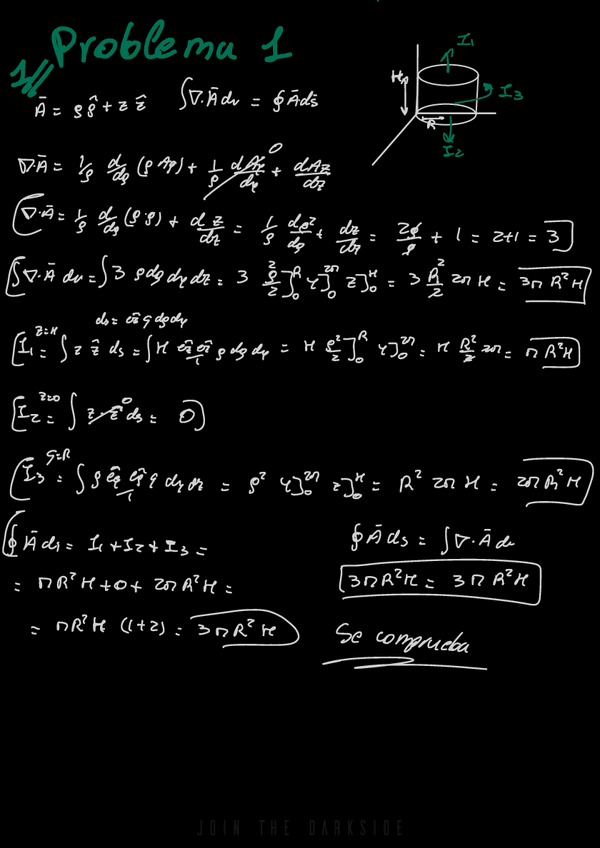 Problema 1
1//
Ā = ρ ρ̂ + z ẑ   ∫∇·Ā dv = ∮Ā ds̄
I₁
H
I₃
R
I₂
∇·Ā = 1/ρ d/dρ (ρ Aρ) + 1/ρ dAφ/dφ 0 + dAz/dz
∇·Ā = 1/ρ d/dρ (ρ·ρ) + dz/dz = 1/ρ dρ²/dρ + dz/dz = 2ρ/ρ + 1 = 2+1 = 3
∫∇·Ā dv = ∫3 ρ dρ dφ dz = 3 ρ²/2]₀ᴿ φ]₀²π z]₀ᴴ = 3 R²/2 2π H = 3π R² H
z=H   ds = e̅z ρ dρ dφ
I₁ = ∫ z ẑ ds = ∫H e̅z e̅z 1 ρ dρ dφ = H ρ²/2]₀ᴿ φ]₀²π = H R²/2 2π = π R² H
z=0
I₂ = ∫ z·ẑ 0 ds = 0
ρ=R
I₃ = ∫ ρ e̅ρ e̅ρ 1 ρ dφ dz = ρ² φ]₀²π z]₀ᴴ = R² 2π H = 2π R² H
∮Ā ds = I₁ + I₂ + I₃ =   ∮Ā ds = ∫∇·Ā dv
= π R² H + 0 + 2π R² H =   3π R² H = 3π R² H
= π R² H (1+2) = 3π R² H   Se comprueba
JOIN THE DARKSIDE